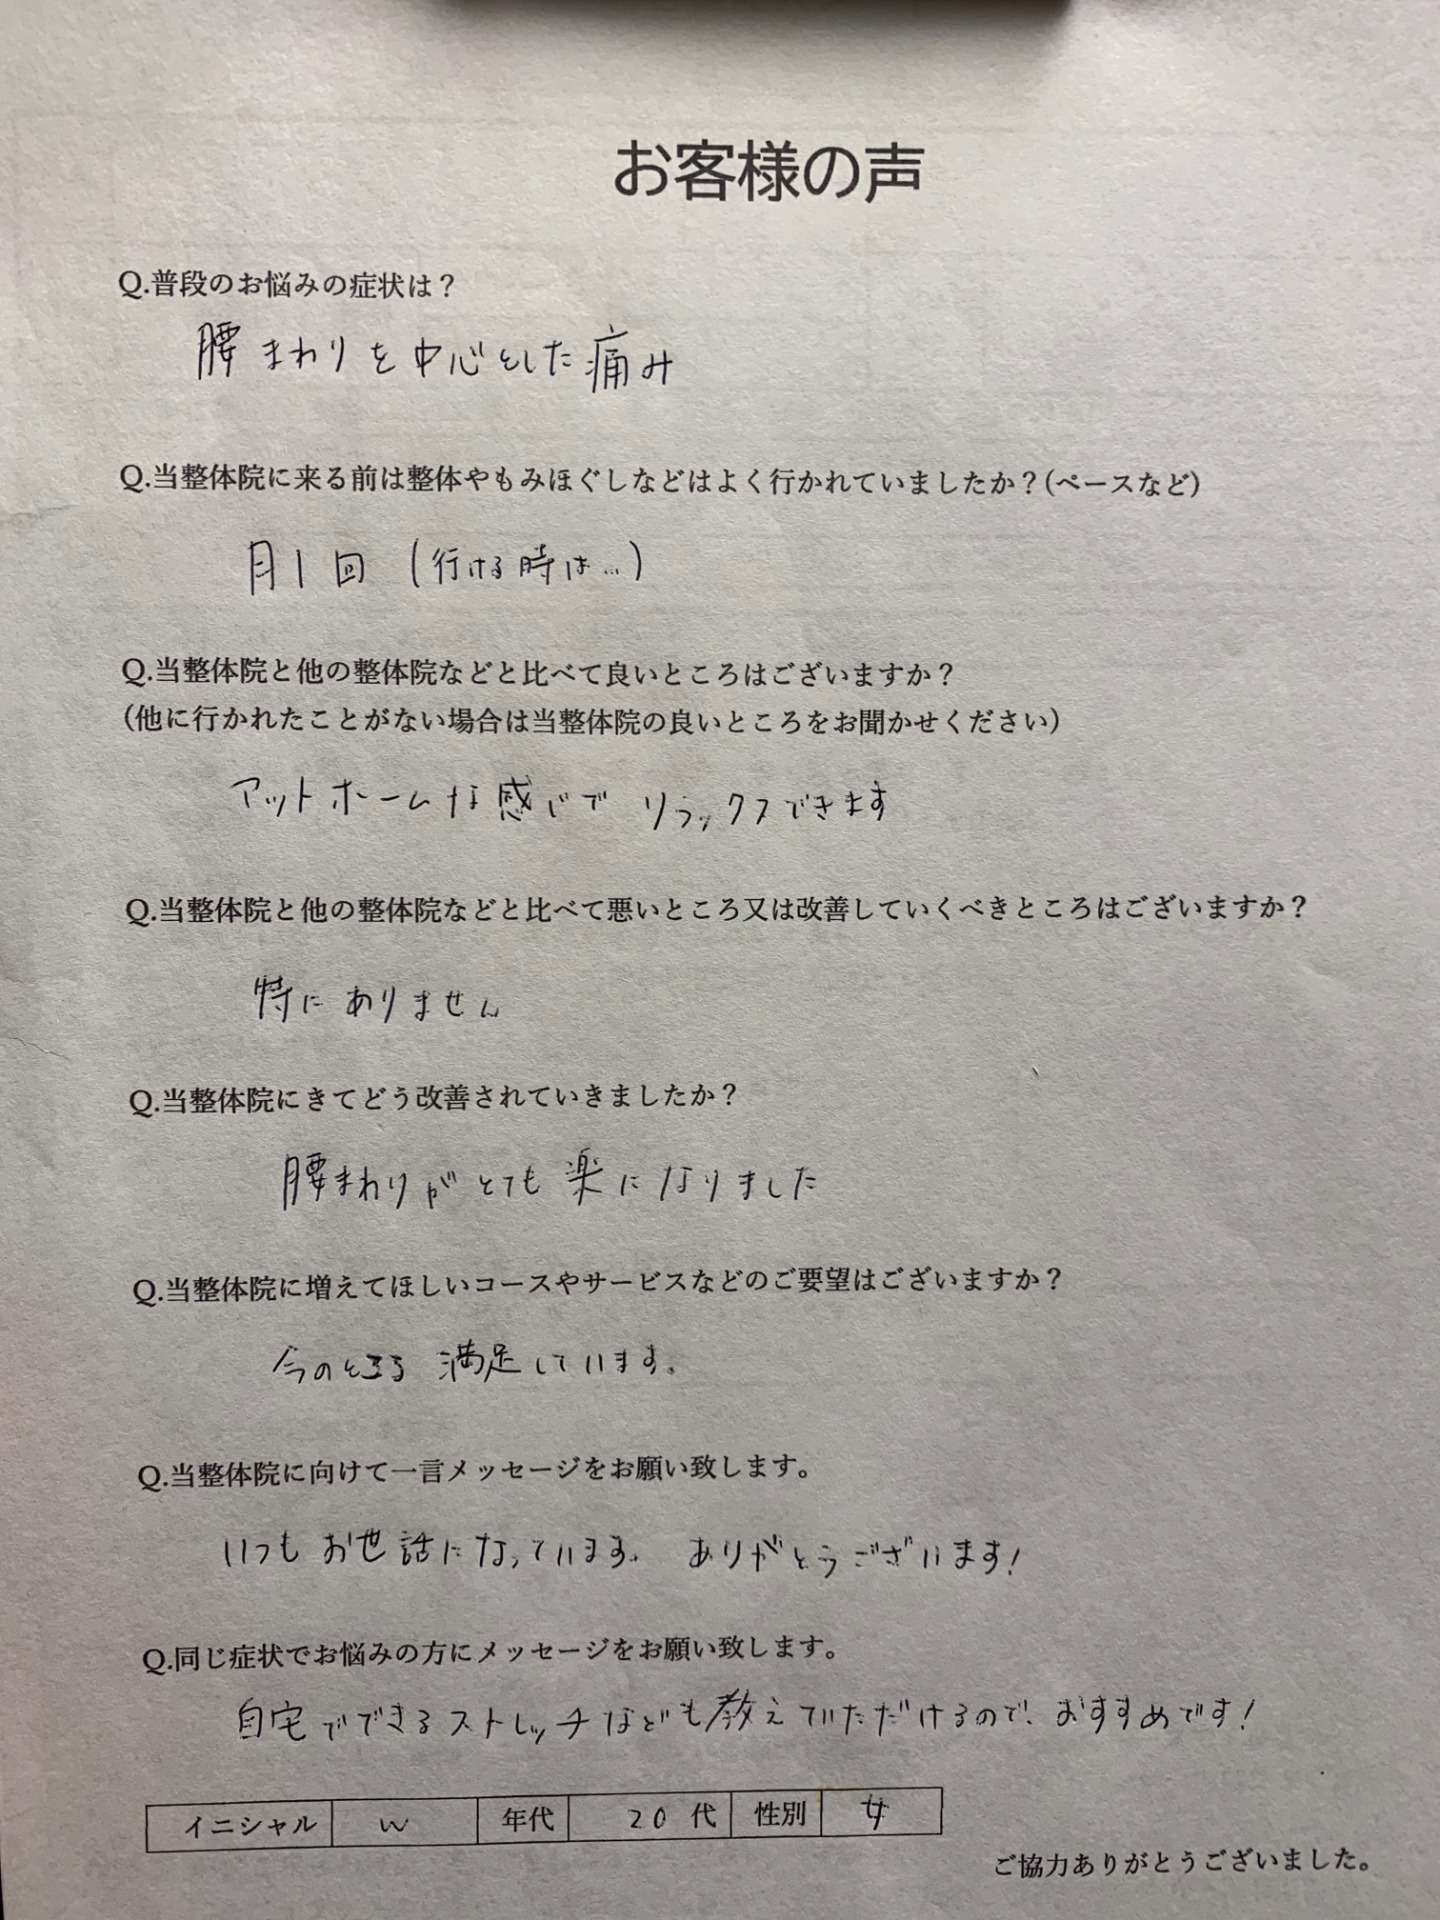 お客様の声
Q.普段のお悩みの症状は？
腰まわりを中心とした痛み
Q.当整体院に来る前は整体やもみほぐしなどはよく行かれていましたか？(ペースなど)
月1回 (行ける時は...)
Q.当整体院と他の整体院などと比べて良いところはございますか？
(他に行かれたことがない場合は当整体院の良いところをお聞かせください)
アットホームな感じで リラックスできます
Q.当整体院と他の整体院などと比べて悪いところ又は改善していくべきところはございますか？
特にありません
Q.当整体院にきてどう改善されていきましたか？
腰まわりがとても楽になりました
Q.当整体院に増えてほしいコースやサービスなどのご要望はございますか？
今のところ 満足しています。
Q.当整体院に向けて一言メッセージをお願い致します。
いつもお世話になっています。 ありがとうございます！
Q.同じ症状でお悩みの方にメッセージをお願い致します。
自宅でできるストレッチなども教えていただけるので、おすすめです！
イニシャル W 年代 20 代 性別 女
ご協力ありがとうございました。